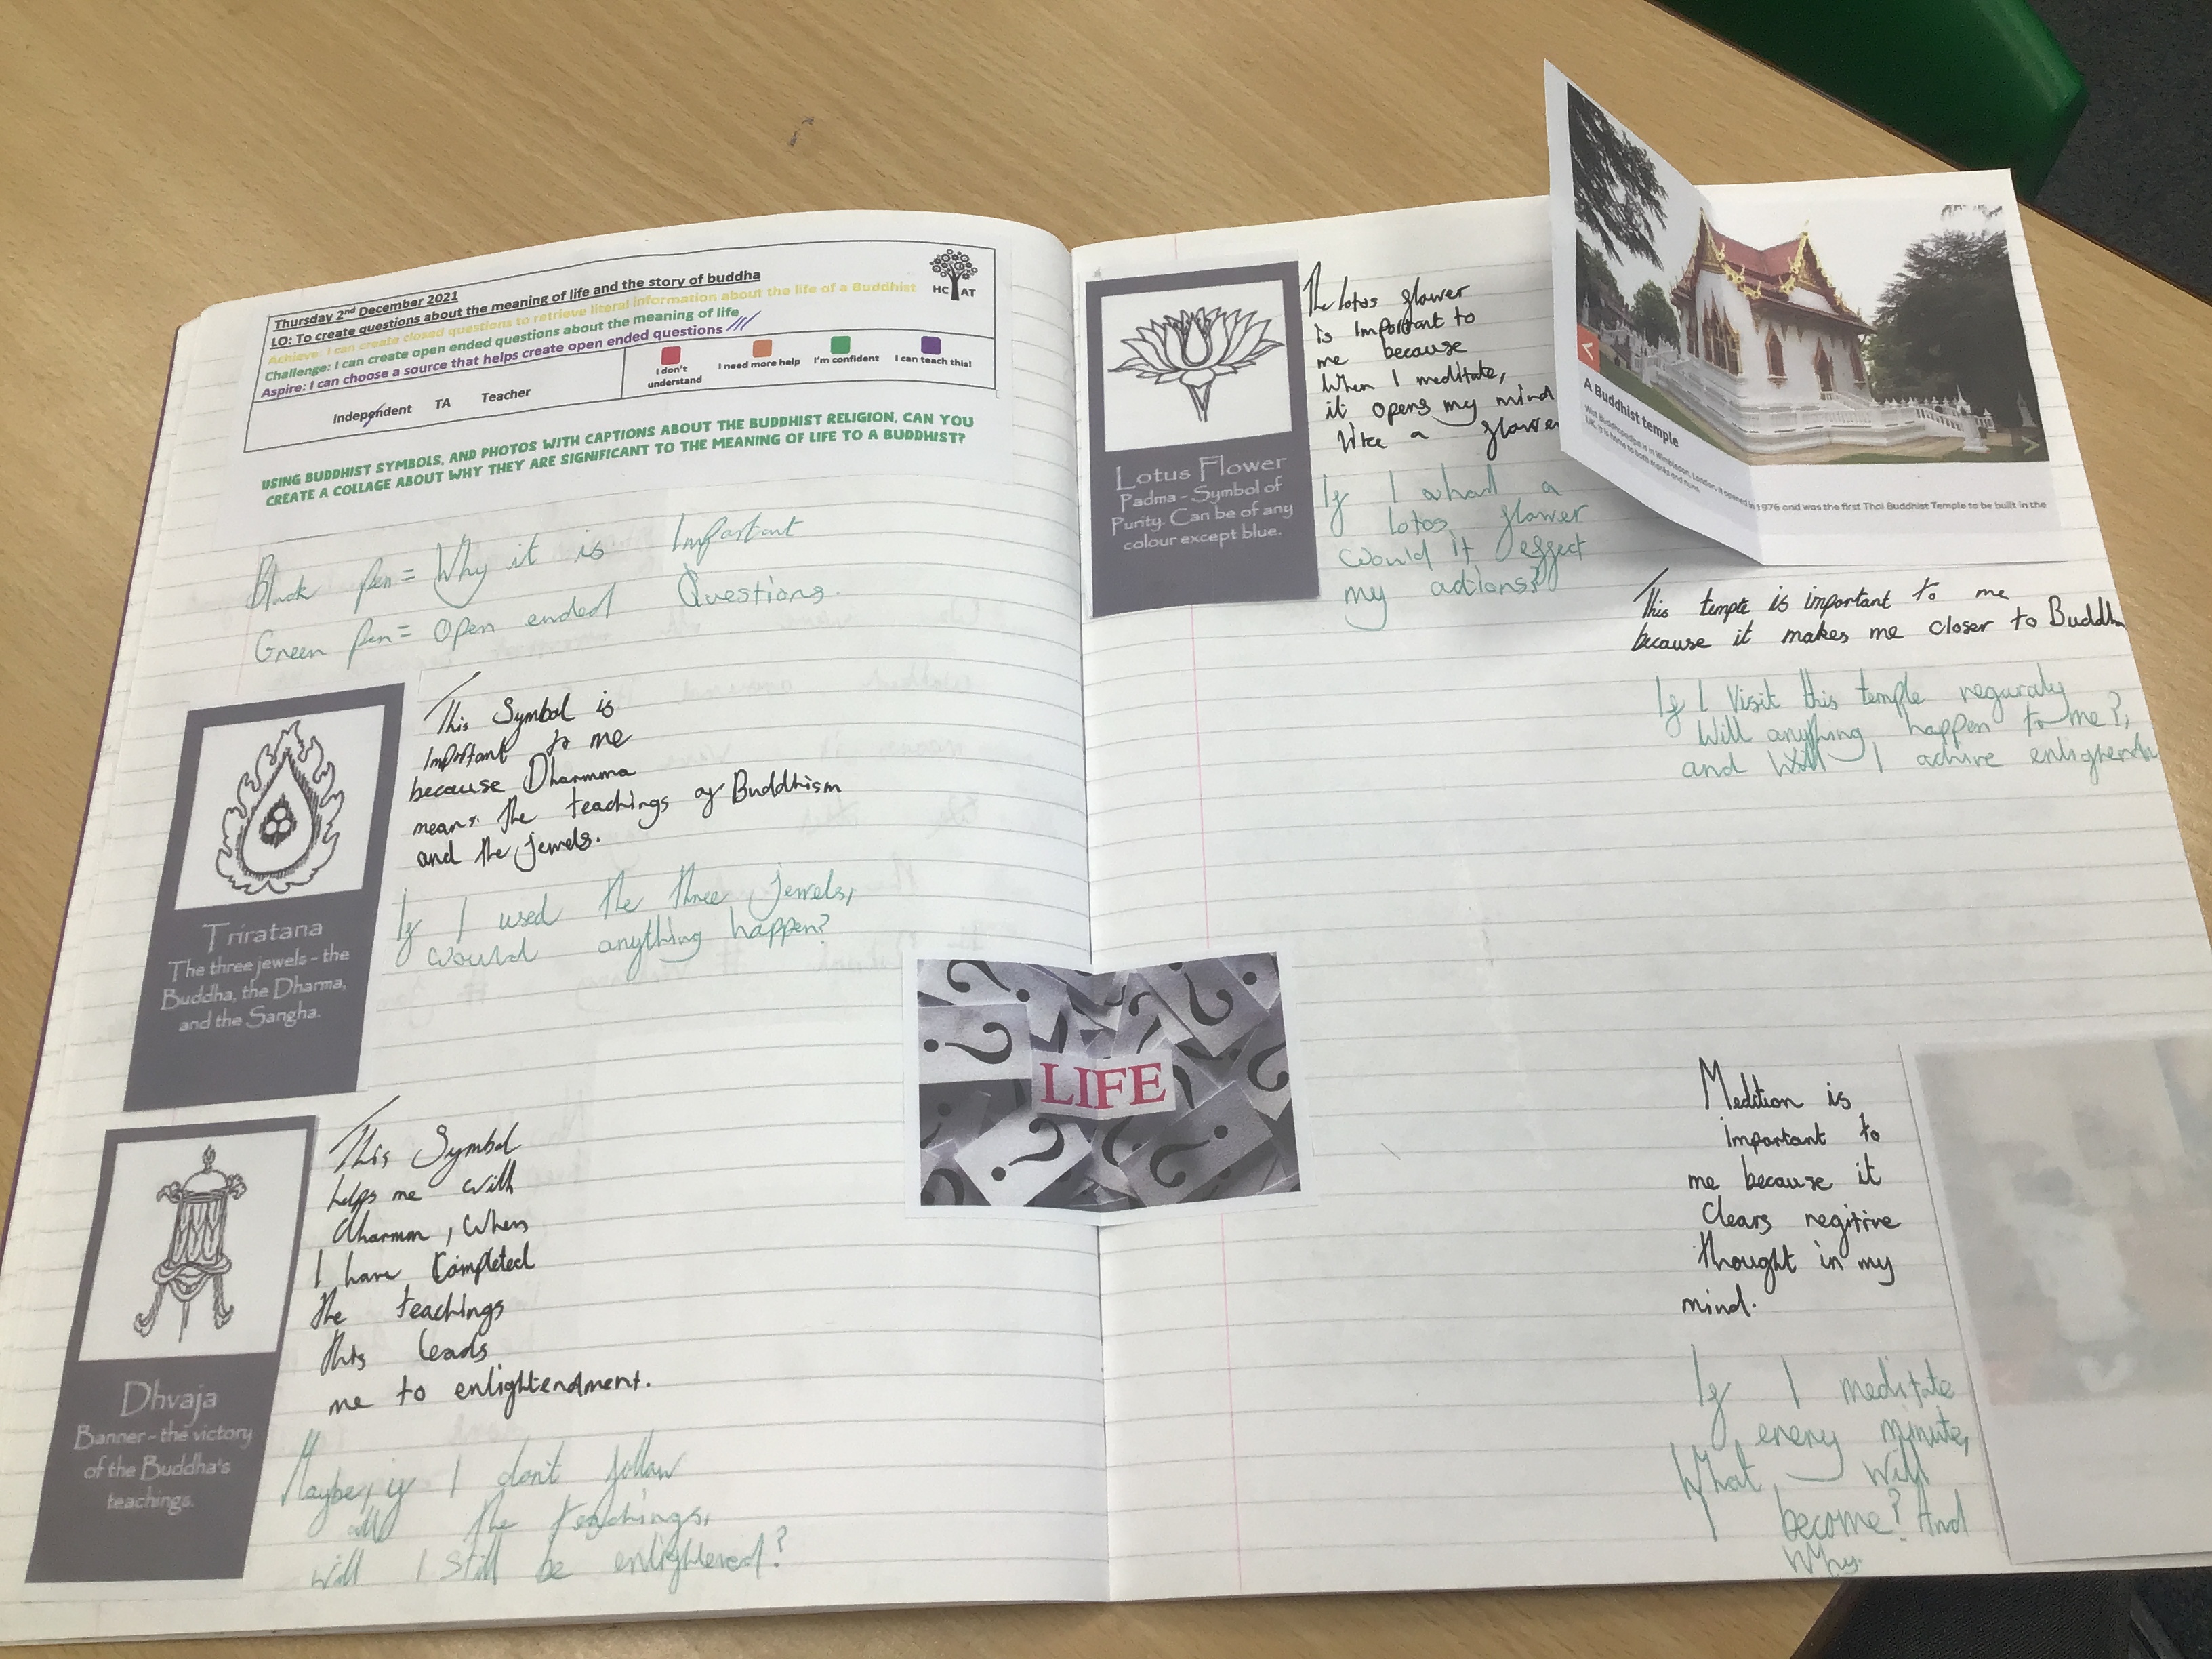 Thursday 2nd December 2021
LO: To create questions about the meaning of life and the story of buddha
Achieve: I can create closed questions to retrieve literal information about the life of a Buddhist
Challenge: I can create open ended questions about the meaning of life
Aspire: I can choose a source that helps create open ended questions
HC AT
Independent TA Teacher
I don't understand
I need more help
I'm confident
I can teach this!
USING BUDDHIST SYMBOLS, AND PHOTOS WITH CAPTIONS ABOUT THE BUDDHIST RELIGION, CAN YOU
CREATE A COLLAGE ABOUT WHY THEY ARE SIGNIFICANT TO THE MEANING OF LIFE TO A BUDDHIST?
Black pen = Why it is Important
Green pen = Open ended Questions.
Triratana
The three jewels - the
Buddha, the Dharma,
and the Sangha.
This Symbol is
important to me
because Dharmma
means the teachings of Buddhism
and the jewels.
If I used the three jewels,
would anything happen?
Dhvaja
Banner - the victory
of the Buddha's
teachings.
This Symbol
helps me with
dharmm, When
I have Completed
the teachings
this leads
me to enlightendment.
Maybe, if I don't follow
all the teachings,
will I still be enlightered?
LIFE
Lotus Flower
Padma - Symbol of
Purity. Can be of any
colour except blue.
The lotos flower
is important to
me because
When I meditate,
it opens my mind
like a flower
If I had a
lotos flower
would it effect
my actions?
A Buddhist temple
Wat Buddhapadipa is in Wimbledon, London. It opened in 1976 and was the first Thai Buddhist Temple to be built in the
UK. It is home to both monks and nuns.
This temple is important to me
because it makes me closer to Buddh
If I Visit this temple reguraly
Will anything happen to me?,
and will I achive
Medition is
important to
me because it
Clears negitive
thought in my
mind.
If I meditate
every minute,
What will
I become? And
Why.